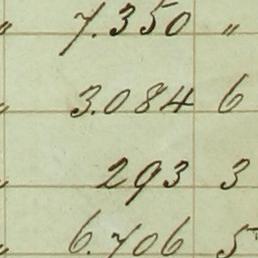 " 7.350 "
" 3.084 6
" 293 3
" 6.706 5